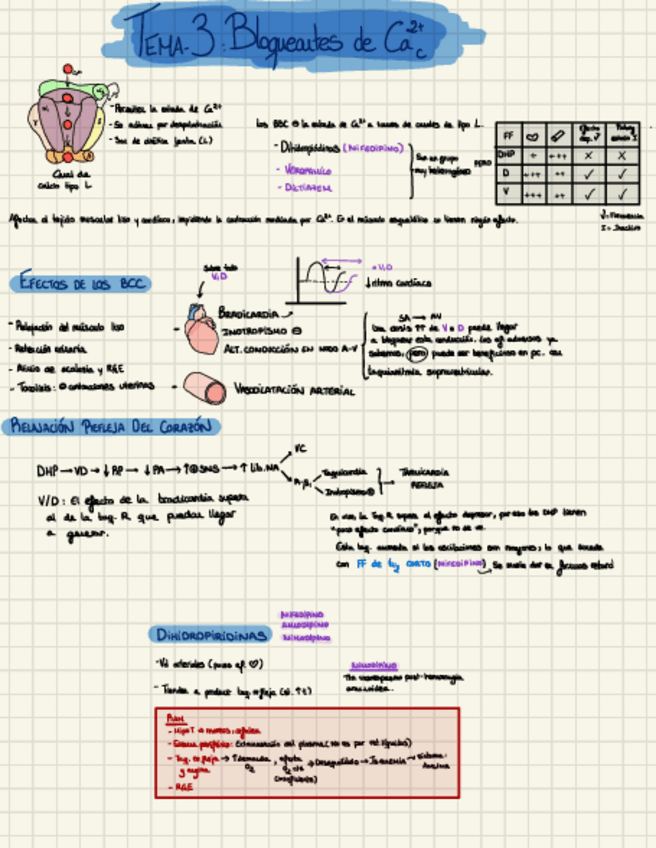 TEMA-3: Bloqueantes de Ca²⁺c
- Permiten la entrada de Ca²⁺
- Se activan por despolarización
- Son de cinética lenta (L)
Canal de calcio tipo L
Los BBC ⊖ la entrada de Ca²⁺ a través de canales de tipo L.
- Dihidropiridinas (NIFEDIPINO)
- VERAPAMILO
- DILTIAZEM
Son un grupo muy heterogéneo
PERO
FF
DHP + +++ X X
D ++ ++ ✓ ✓
V +++ ++ ✓ ✓
V = Frecuencia
I = Inactivo
Afectan al tejido muscular liso y cardíaco, impidiendo la contracción mediada por Ca²⁺. En el músculo esquelético no tienen ningún efecto.
EFECTOS DE LOS BCC
- Relajación del músculo liso
- Retención urinaria
- Alivio de acalasia y RGE
- Tocolisis: ⊖ contracciones uterinas
Sobre todo
V, D
+ V, D
↓ ritmo cardíaco
BRADICARDIA
INOTROPISMO ⊖
ALT. CONDUCCIÓN EN NODO A-V
SA → AV
Una dosis ↑↑ de V o D puede llegar
a bloquear esta conducción. Los ef. adversos ya
sabemos, pero puede ser beneficioso en pc. con
taquiarritmia supraventricular.
VASODILATACIÓN ARTERIAL
RELAJACIÓN REFLEJA DEL CORAZÓN
DHP → VD → ↓ RP → ↓ PA → ↑⊕SNS → ↑ lib. NA
VC
Taquicardia
Inotropismo⊕
TAQUICARDIA REFLEJA
V/D: El efecto de la bradicardia supera
al de la taq. R que puedan llegar
a generar.
En vivo, la Taq. R supera al efecto depresor, por eso las DHP tienen
"poco efecto cardíaco", porque no se ve.
Esta taq. aumenta si las oscilaciones son mayores, lo que sucede
con FF de t½ CORTO (NIFEDIPINO). Se suele dar en formas retard
DIHIDROPIRIDINAS
NIFEDIPINO
AMLODIPINO
NIMODIPINO
- Vd arteriales (poco ef. ♡)
- Tienden a producir taq. refleja
NIMODIPINO
Tto vasoespasmo post-hemorragia
RAM
- HipoT → mareos, cefalea
- Edema periférico: Extravasación del plasma (no es por ret. líquidos)
- Taq. refleja y angina → ↑ demanda O₂, oferta O₂ cte → Desequilibrio → Isquemia
- RGE